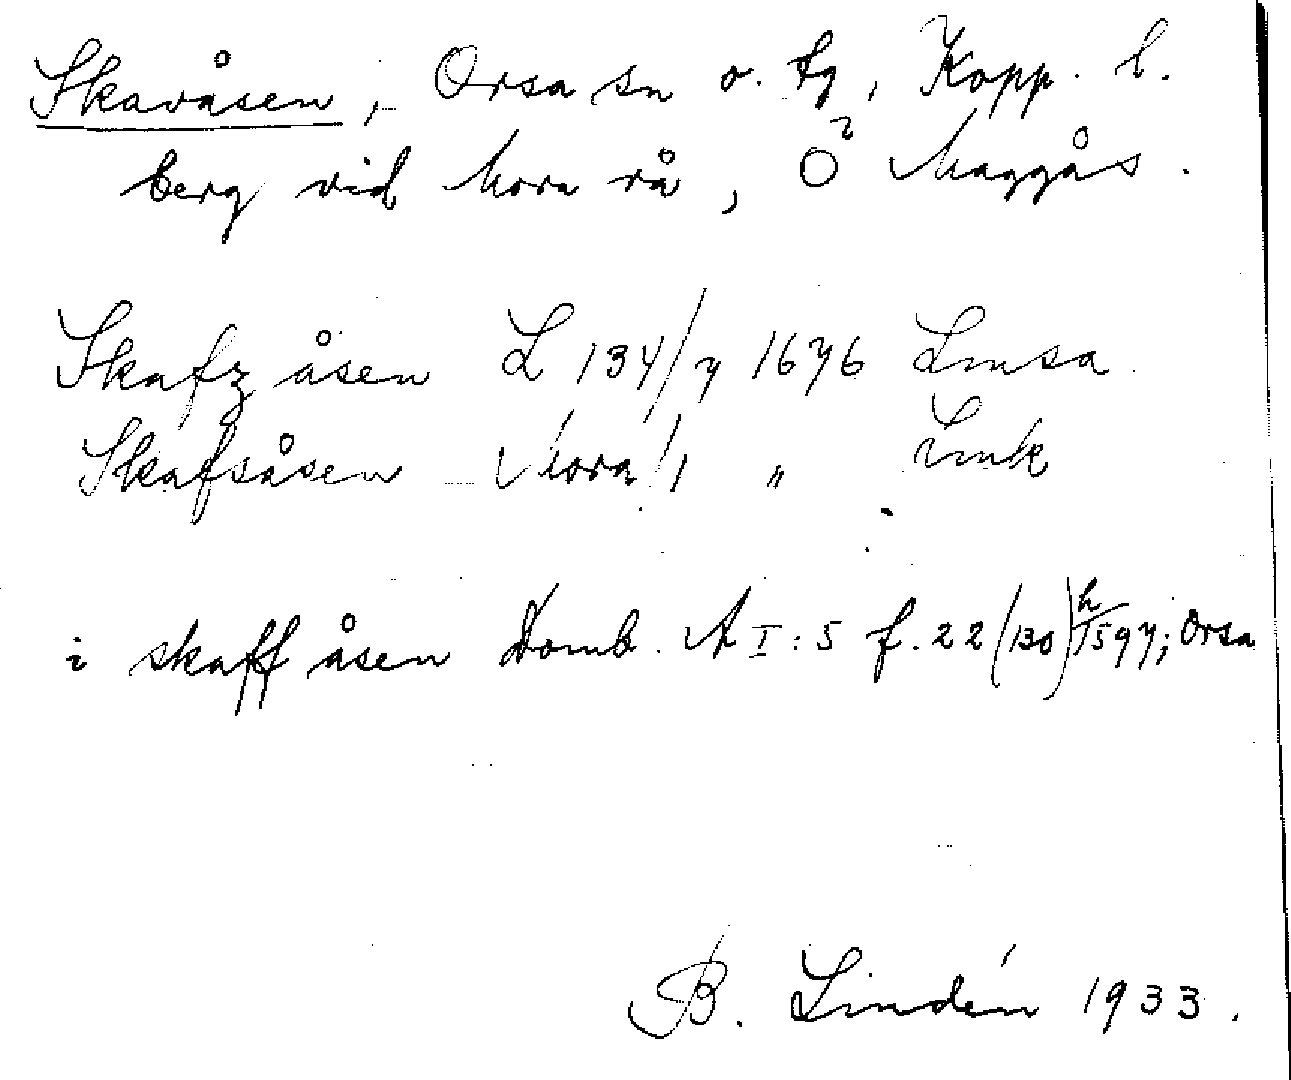 Skavåsen, Orsa sn o. tg, Kopp. l.
berg vid Mora rå, Ö Maggås.
Skafz åsen L 134/7 1676 Lmsa
Skafsåsen Mora 1 " Lmk
i skaff åsen Domb. A I:5 f. 22 (130) 1597; Orsa
B. Lindén 1933.